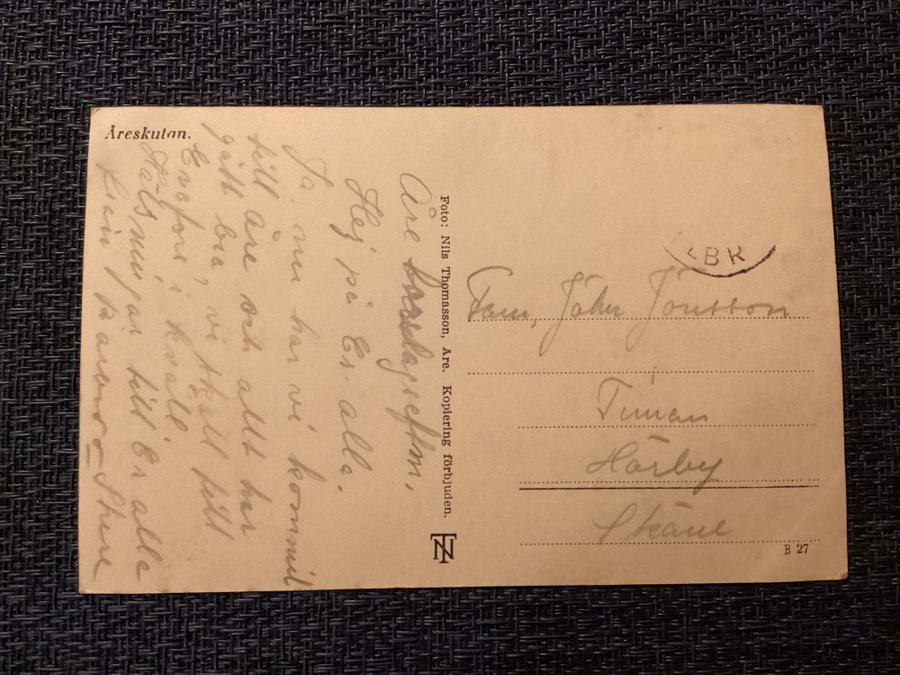 Åreskutan.
Åre torsdagseftm.
Hej på Er alla.
Ja, nu har vi kommit
till Åre och allt har
gått bra, vi skall till
i kväll.
Hälsningar till Er alla
från
Foto: Nils Thomasson, Åre. Kopiering förbjuden.
NT
BK
Fam. John Jönsson
Timan
Hörby
Skåne
B 27